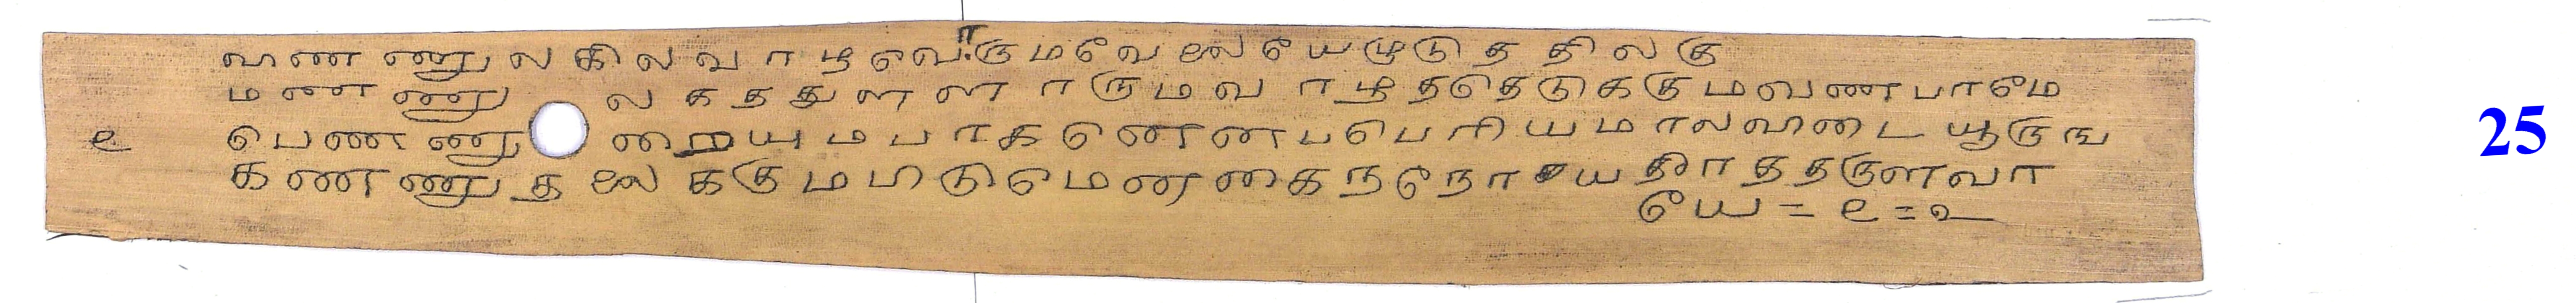 விணணுலகிலவாழவொருமவேலையேமுடுததிலகு
மணணுலகததுளளாருமவாழததெடுககுமவணபாமே
௨ பெணணுறையுமபாகனெனபபெரியமாலவிடையூருங
கணணுதலைககுமபிடுமெனகைநநோயதீாததருளவா
யே = ௨ = உ
25